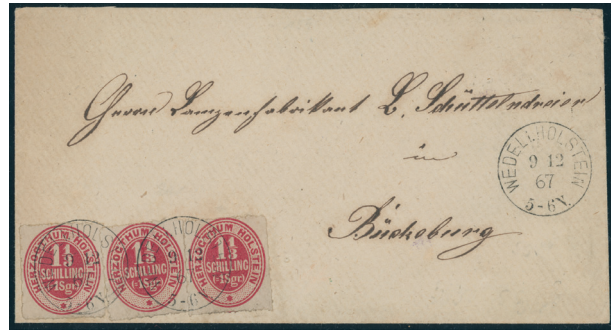 Herrn Lampenfabrikant L. Schüttelndreier
in
Bückeburg
WEDEL HOLSTEIN
9 12
67
5-6N.
HERZOGTHUM HOLSTEIN
1⅓
SCHILLING
(=1Sgr.)
HERZOGTHUM HOLSTEIN
1⅓
SCHILLING
(=1Sgr.)
HERZOGTHUM HOLSTEIN
1⅓
SCHILLING
(=1Sgr.)
9 12
5-6N.
9 12
5-6N.